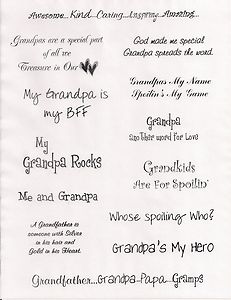 Awesome...Kind...Caring...Inspiring...Amazing...
Grandpas are a special part
of all we
Treasure in Our
God made me special
Grandpa spreads the word.
My Grandpa is
my BFF
Grandpas My Name
Spoilin's My Game
Grandpa
another word for Love
My
Grandpa Rocks
Grandkids
Are For Spoilin'
Me and Grandpa
Whose spoiling Who?
A Grandfather is
someone with Silver
in his hair and
Gold in his Heart.
Grandpa's My Hero
Grandfather...Grandpa...Papa...Gramps